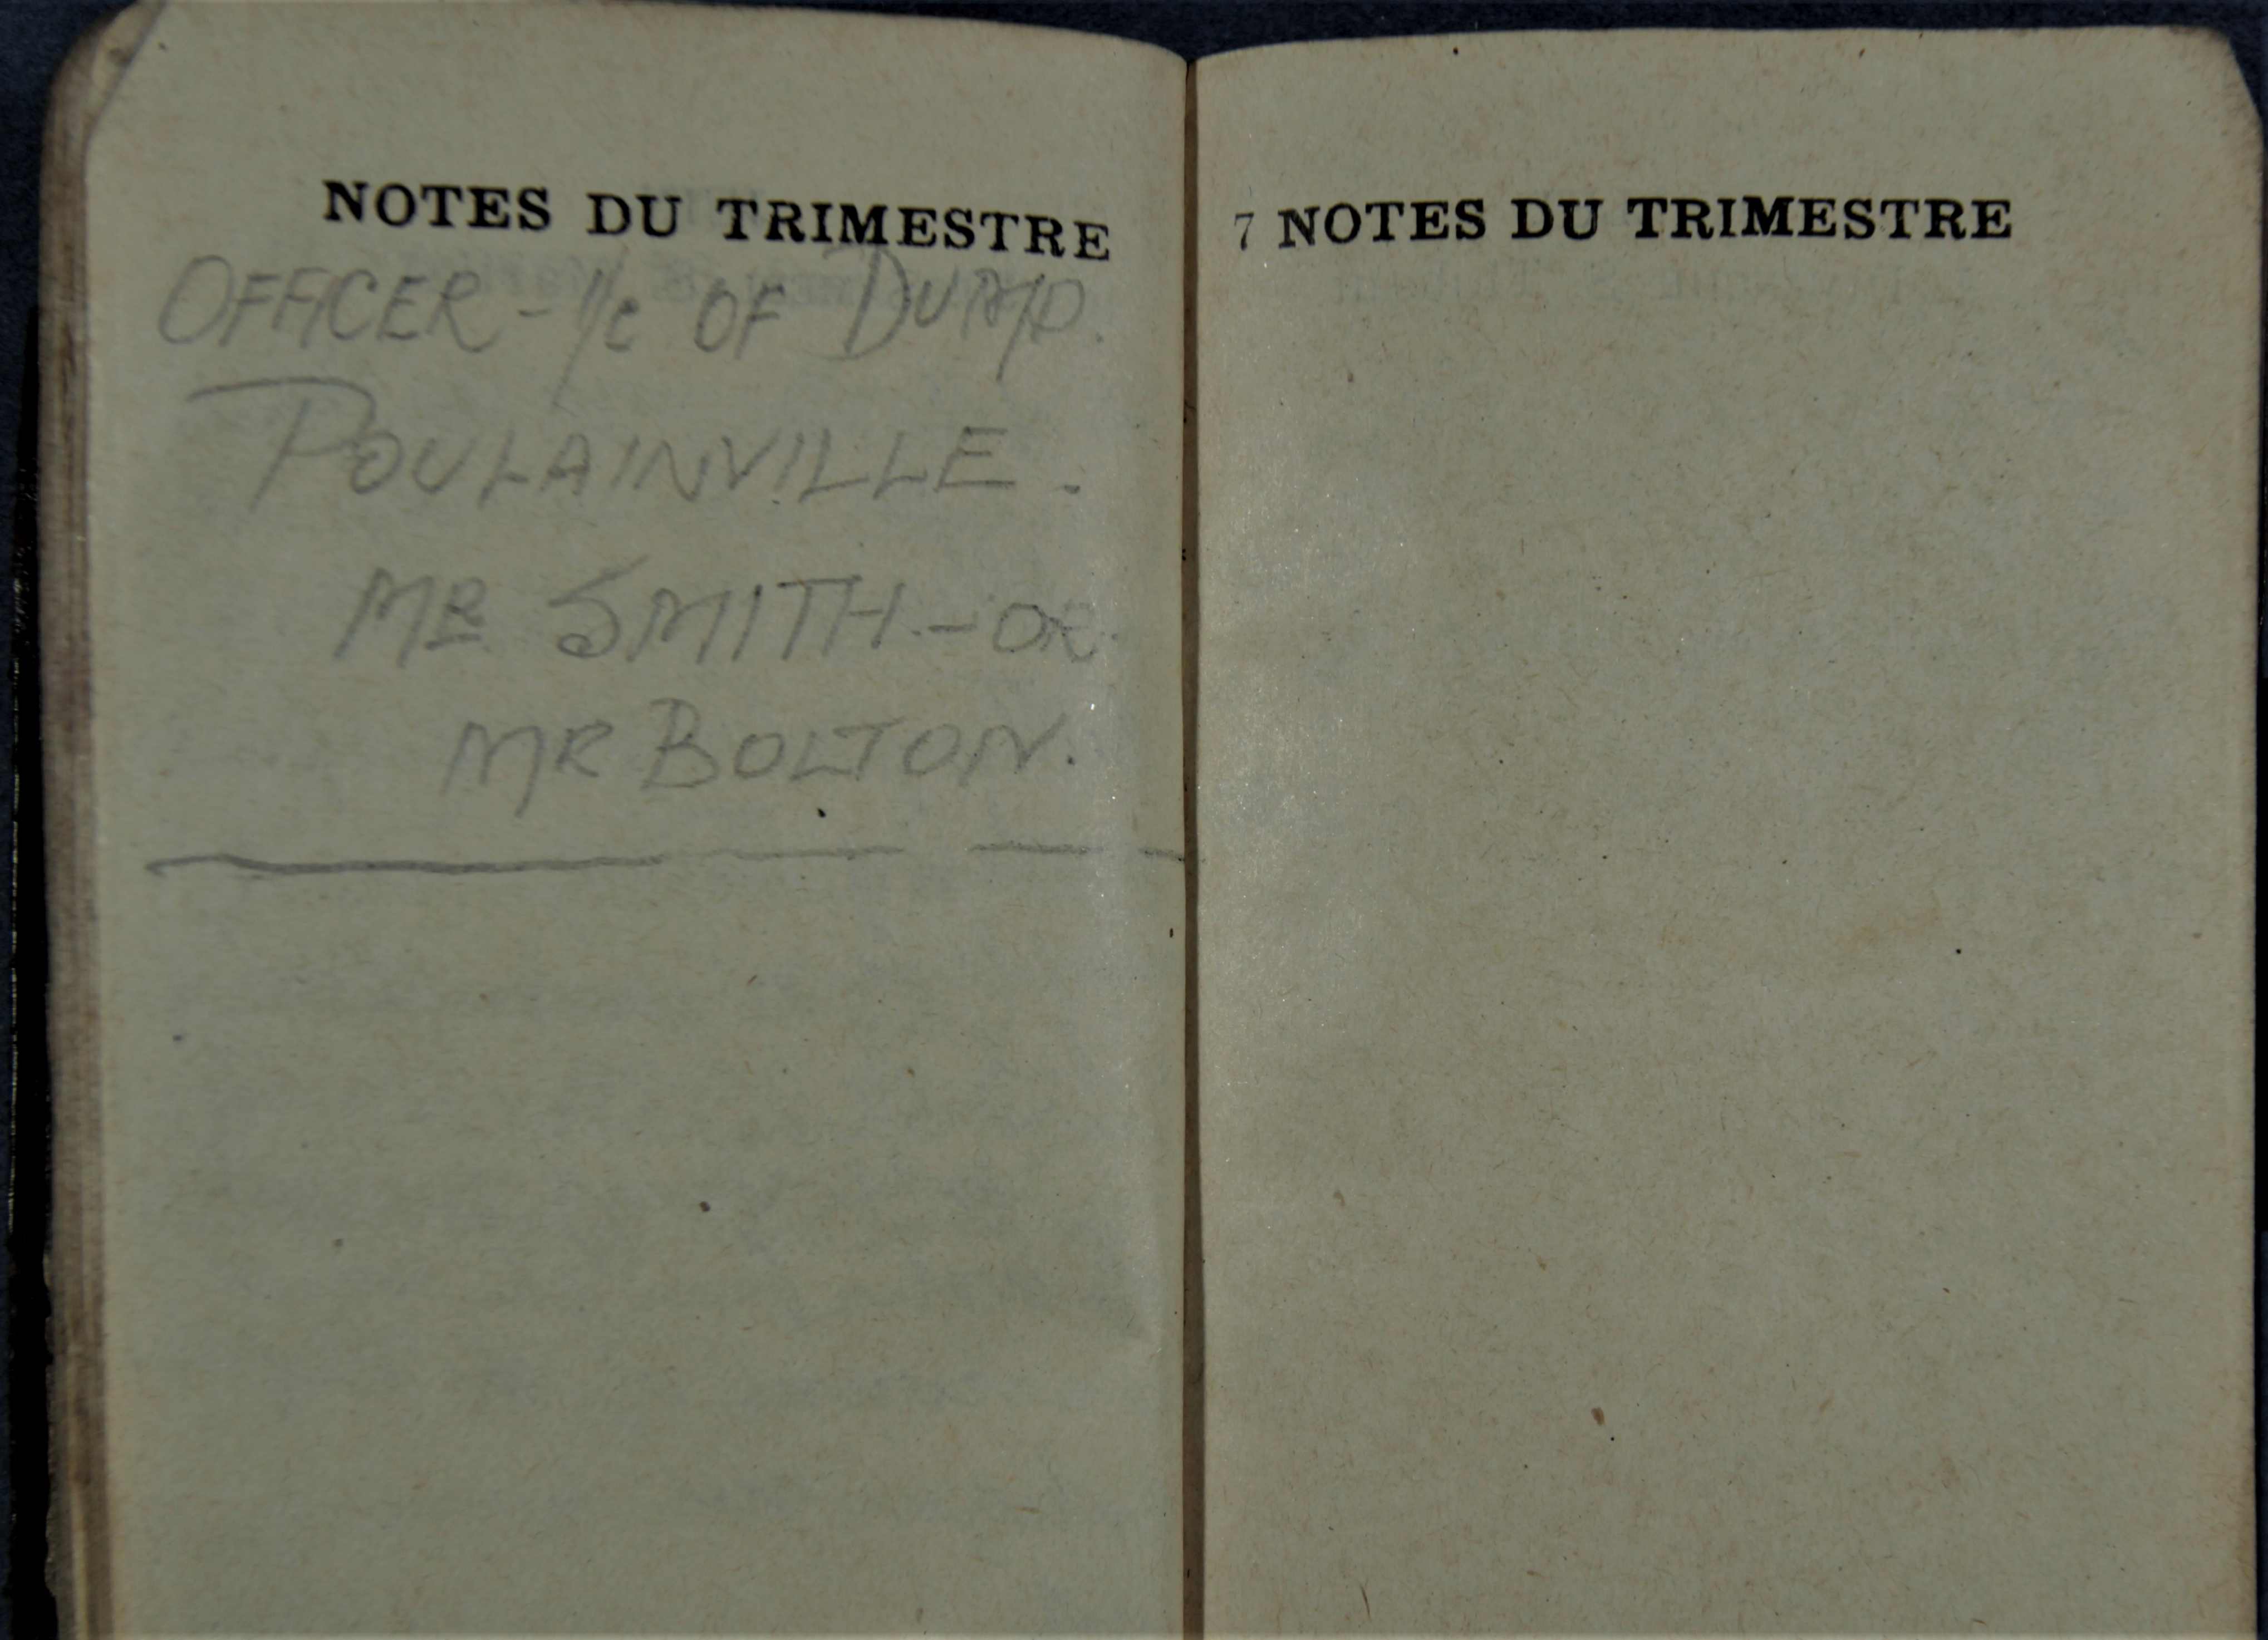 NOTES DU TRIMESTRE
OFFICER - I/C OF DUMP.
POULAINVILLE.
MR SMITH. - OR.
MR BOLTON.
7 NOTES DU TRIMESTRE